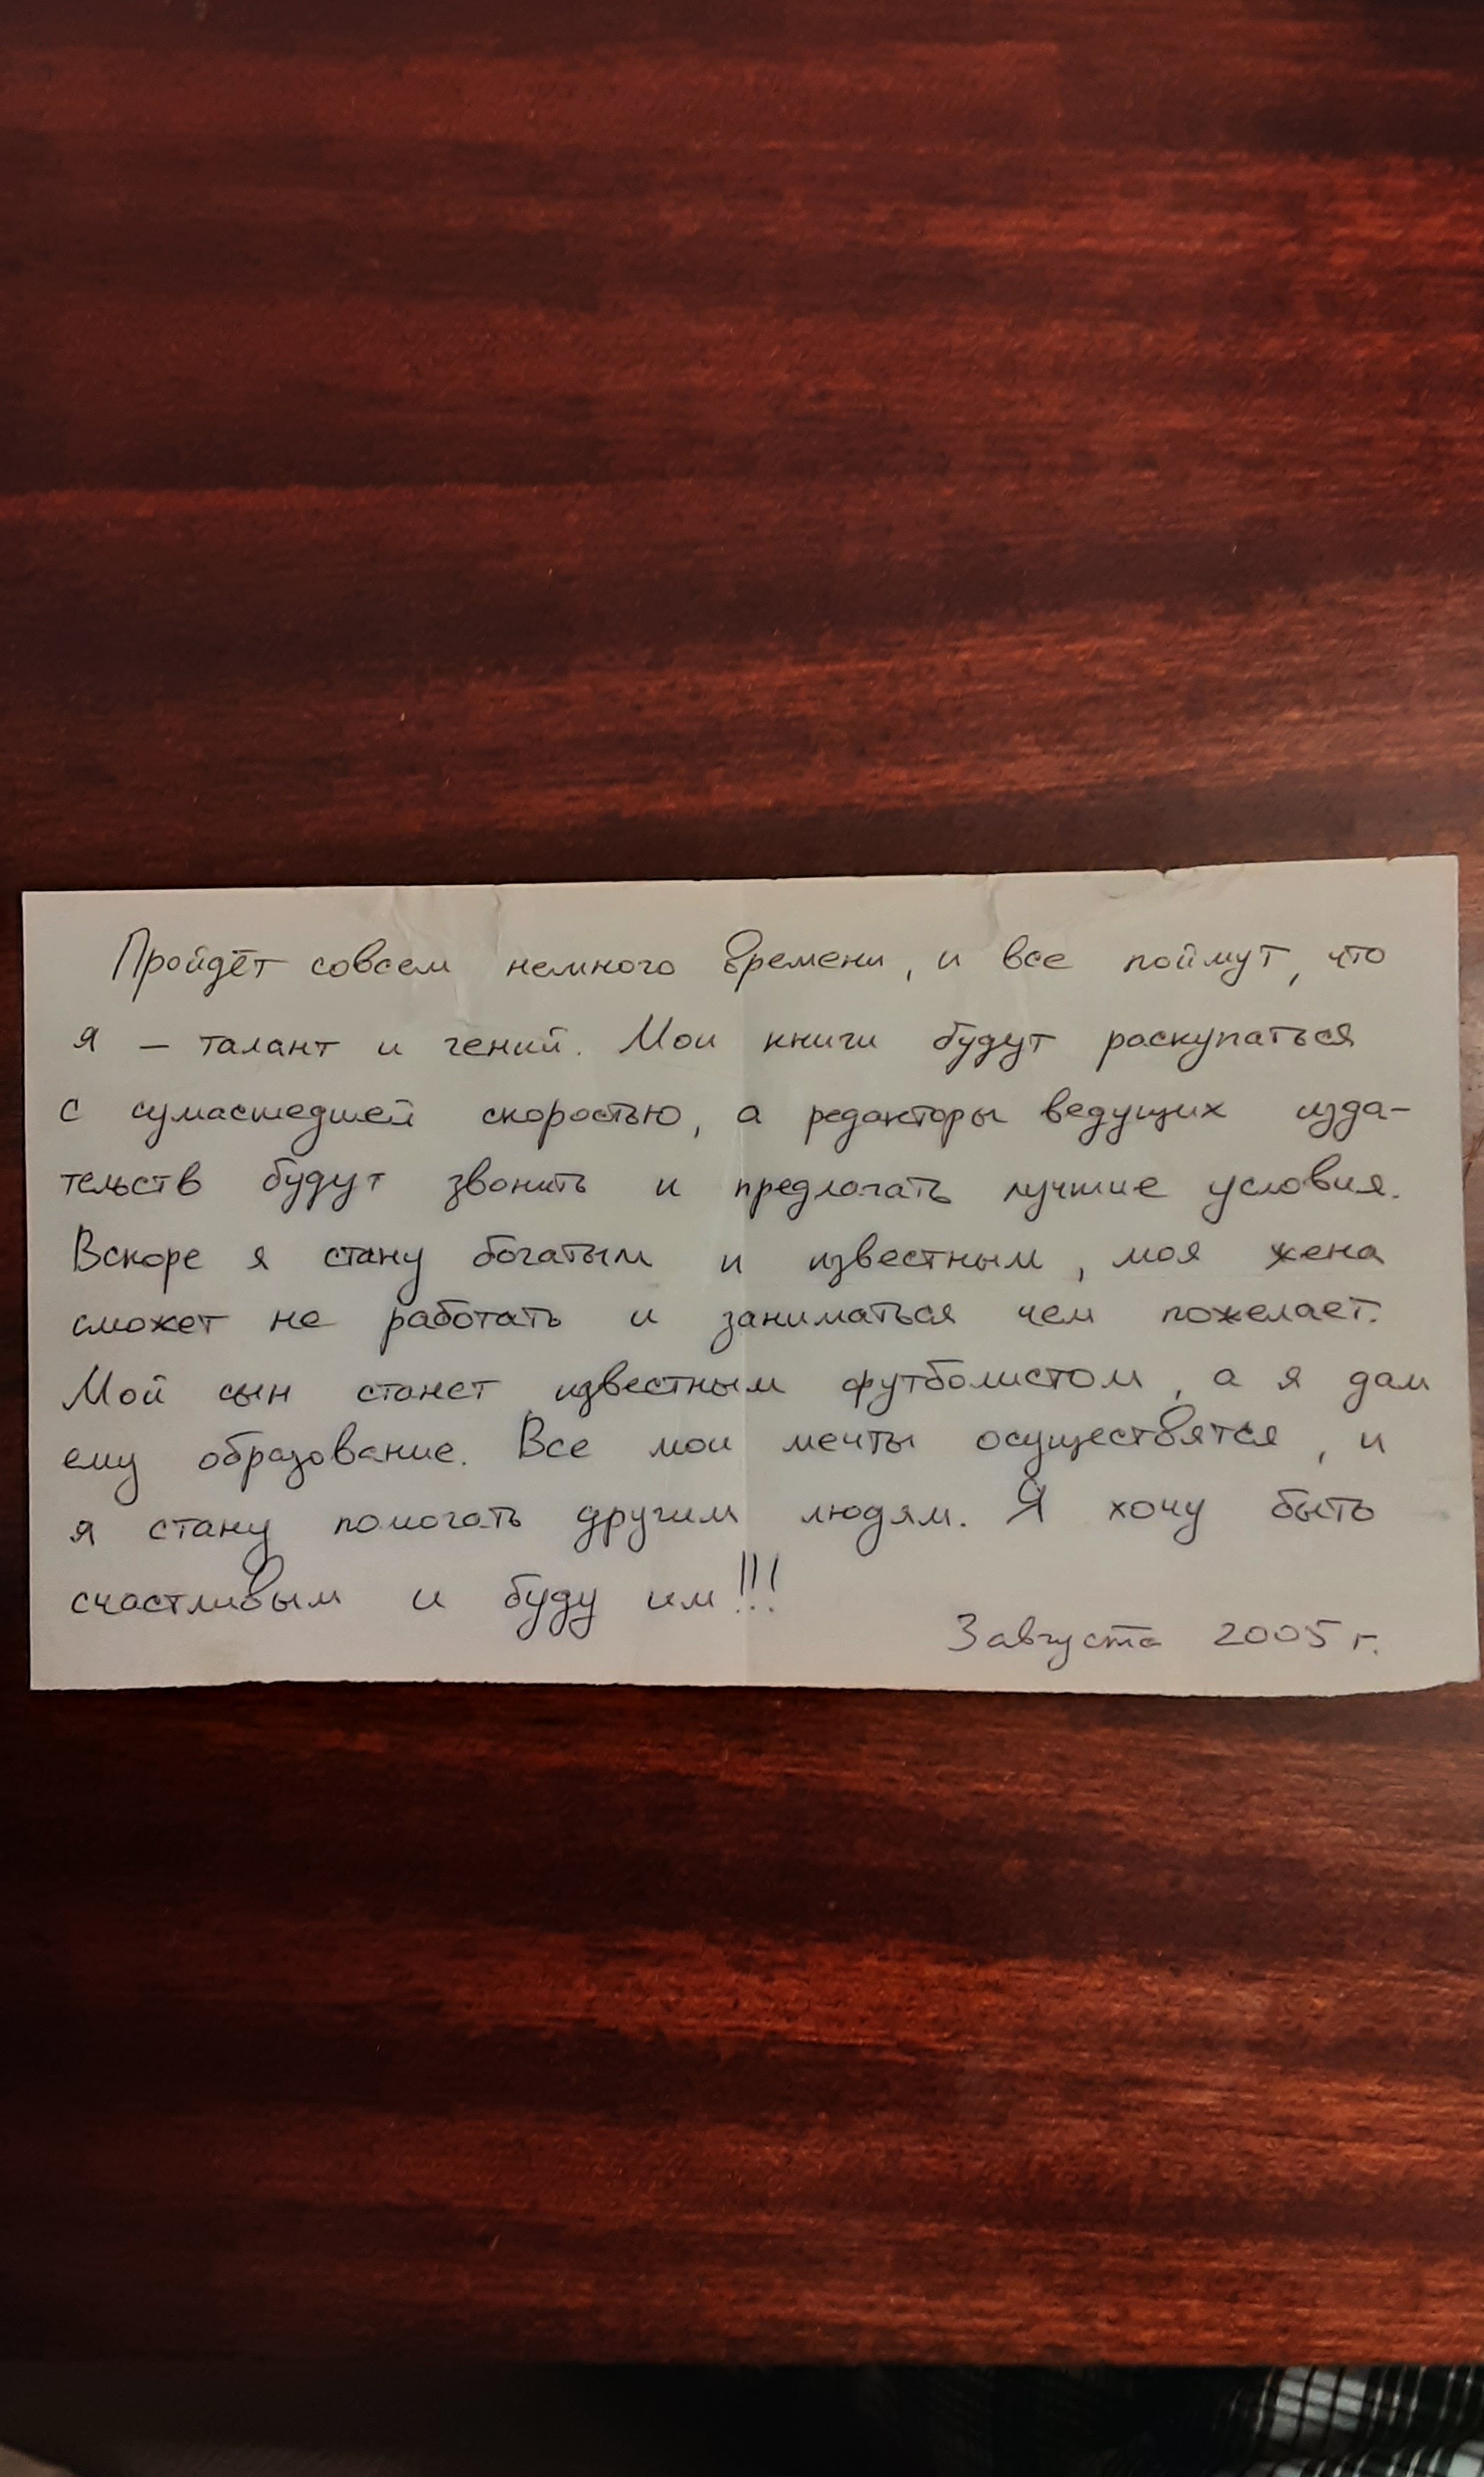 Пройдёт совсем немного времени, и все поймут, что
я – талант и гений. Мои книги будут раскупаться
с сумасшедшей скоростью, а редакторы ведущих изда-
тельств будут звонить и предлагать лучшие условия.
Вскоре я стану богатым и известным, моя жена
сможет не работать и заниматься чем пожелает.
Мой сын станет известным футболистом, а я дам
ему образование. Все мои мечты осуществятся, и
я стану помогать другим людям. Я хочу быть
счастливым и буду им!!!
3 августа 2005 г.